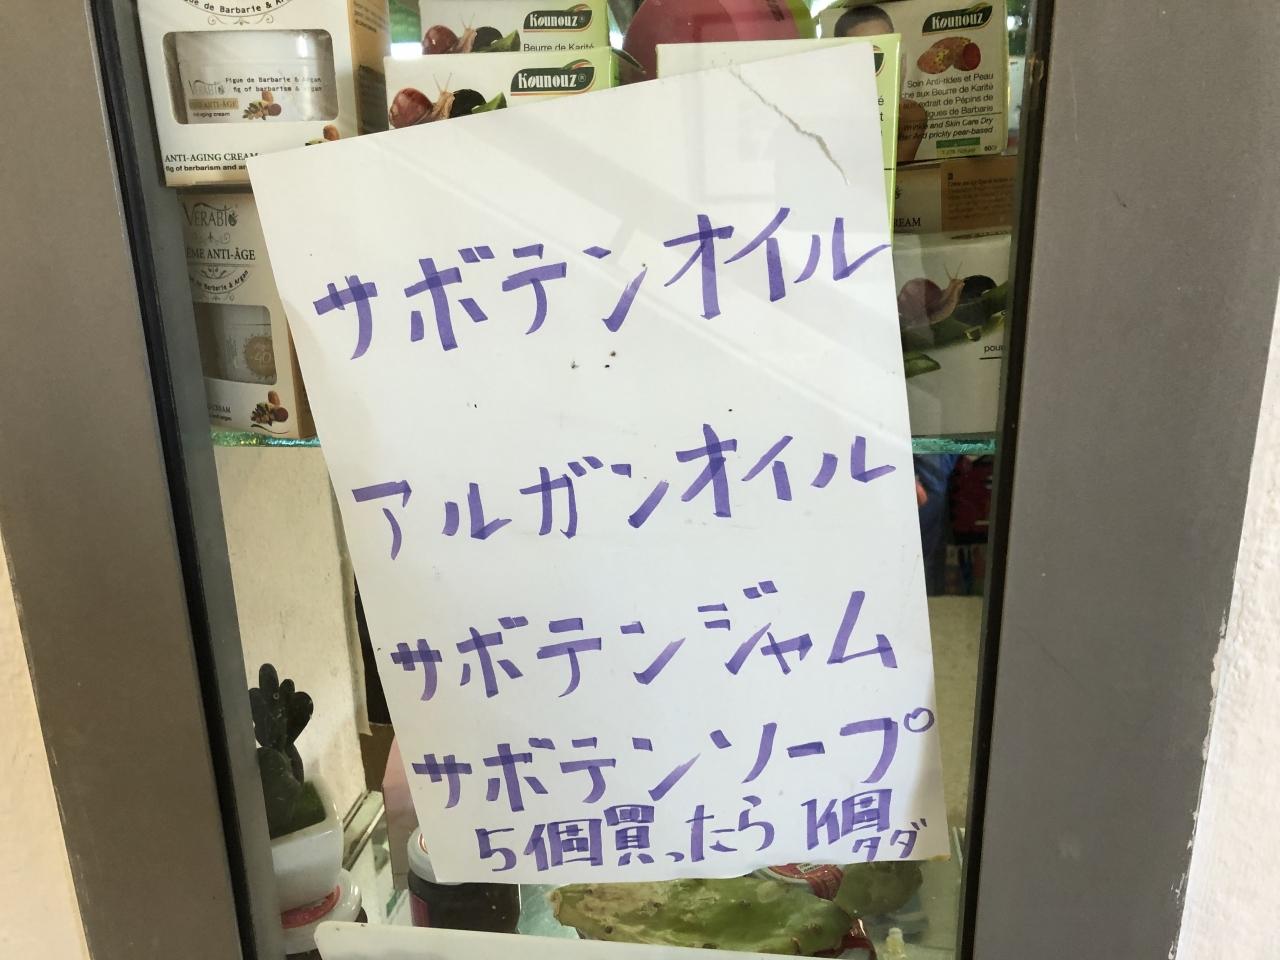 de Barbarie & A
VERABIO
Figue de Barbarie & Argan
fig of barbarism & argan
ANTI-AGING CREAM
fig of barbarism and ar
VERABIO
ÈME ANTI-ÂGE
de Barbarie & Argan
CREAM
Kounouz®
Beurre de Karité
Kounouz®
Kounouz
Soin Anti-rides et Peau
aux Beurre de Karité
extrait de Pépins de
igues de Barbarie
Wrinkle and Skin Care Dry
And prickly pear-based
EAM
pour
サボテンオイル
アルガンオイル
サボテンジャム
サボテンソープ
5個買ったら1個
タダ